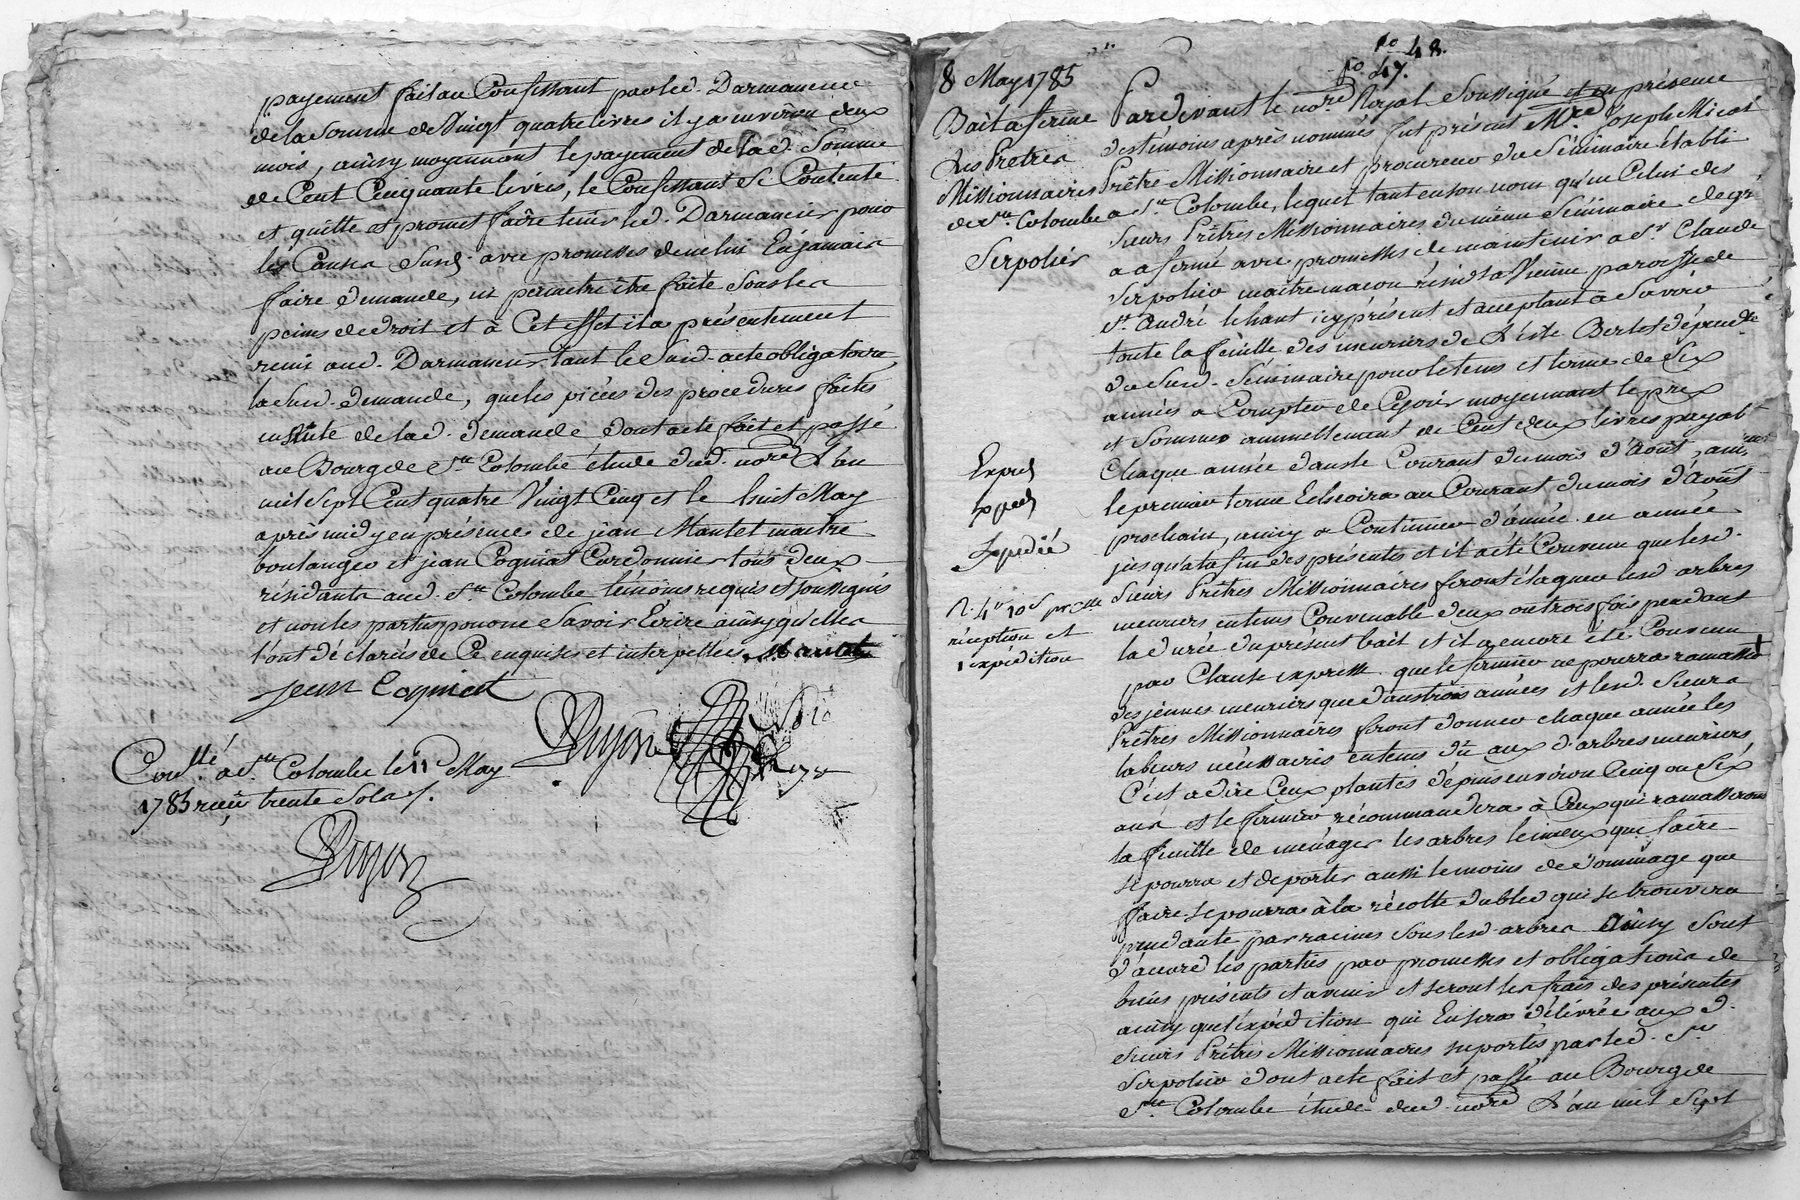 payement fait au Confessant par led. Darmancier
de la Somme de Vingt quatre livres il y a environ deux
mois, ainsy moyennant le payement de la d. Somme
de Cent Cinquante livres, le Confessant Se Contente
et quitte et promet faire tenir led. Darmancier pour
les Causes Susd. avec promesses de ne lui En jamais
faire demande, ni permetre être faite Sous les
peines de droit et à Cet effet il a présentement
remis aud. Darmancier tant le Susd. acte obligatoire,
la Susd. demande, que les pièces des procedures faites
en Suite de lad. demande dont acte fait et passé
au Bourg de Ste Colombe étude dud. nore L'an
mil Sept Cent quatre Vingt Cinq et le huit May
après midy en présence de jean Mantet maitre
boulanger et jean Cogniat Cordonnier tous deux
résidants aud. Ste Colombe témoins requis et soussignés
et non les parties pour ne Savoir Ecrire ainsy qu'elles
l'ont déclarés de Ce enquises et interpellées. Mantet
jean Cogniat
Dujon
Conllé a Ste Colombe le 11 May
1785 reçu trente Sols
Dujon
fo 48.
fo 47.
8 May 1785
Bail a ferme
Les Pretres
Missionnaires
de Ste Colombe a
Serpolier
Exped
Exped
Expediée
R. 4# 10s pr cllle
reception et
1 expédition
Pardevant le nore Royal Soussigné et en présence
des témoins après nommés fut présent Mre Joseph Micat
Prêtre Missionnaire et procureur du Séminaire établi
a Ste Colombe, lequel tant en son nom qu'en Celui des
Sieurs Prêtres Missionnaires du même Séminaire de gré
a afermé avec promesses de maintenir a Sr Claude
Serpolier maitre maçon résidt a Vienne paroisse de
St André le haut icy présent et acceptant a Savoir
toute la feuille des meuriers de L'isle Berlet dépendte
du Susd. Séminaire pour le tems et terme de Six
années a Compter de Cejour moyennant le prix
et Somme annuellement de Cent deux livres payable
Chaque année dans le Courant du mois d'Août, ainsy
le premier terme Echeoira au Courant du mois d'août
prochain, ainsy a Continuer d'année en année
jusqu'a la fin des présentes et il a été Convenu que lesd.
Sieurs Prêtres Missionnaires feront élaguer lesd arbres
meuriers en tems Convenable deux ou trois fois pendant
la durée du présent bail et il a encore été Convenu
par Clause expresse que le fermier ne pourra ramasser
des jeunes meuriers que dans trois années et lesd. Sieurs
Prêtres Missionnaires feront donner chaque année les
labeurs nécessaires en tems dû aux d. arbres meuriers
C'est a dire Ceux plantés depuis environ Cinq ou Six
ans et le fermier récommandera à Ceux qui ramasseront
la feuille de ménager les arbres le mieux que faire
se pourra et de porter aussi le moins de dommage que
faire se pourra à la récolte du bled qui se trouvera
pendante par racines Sous lesd. arbres Ainsy Sont
d'accord les parties par promesses et obligations de
biens présents et avenir et seront les frais des présentes
ainsy que l'expédition qui En sera délivrée aux d.
Sieurs Prêtres Missionnaires suportés par led. Sr
Serpolier dont acte fait et passé au Bourg de
Ste Colombe étude dud. nore L'an mil Sept